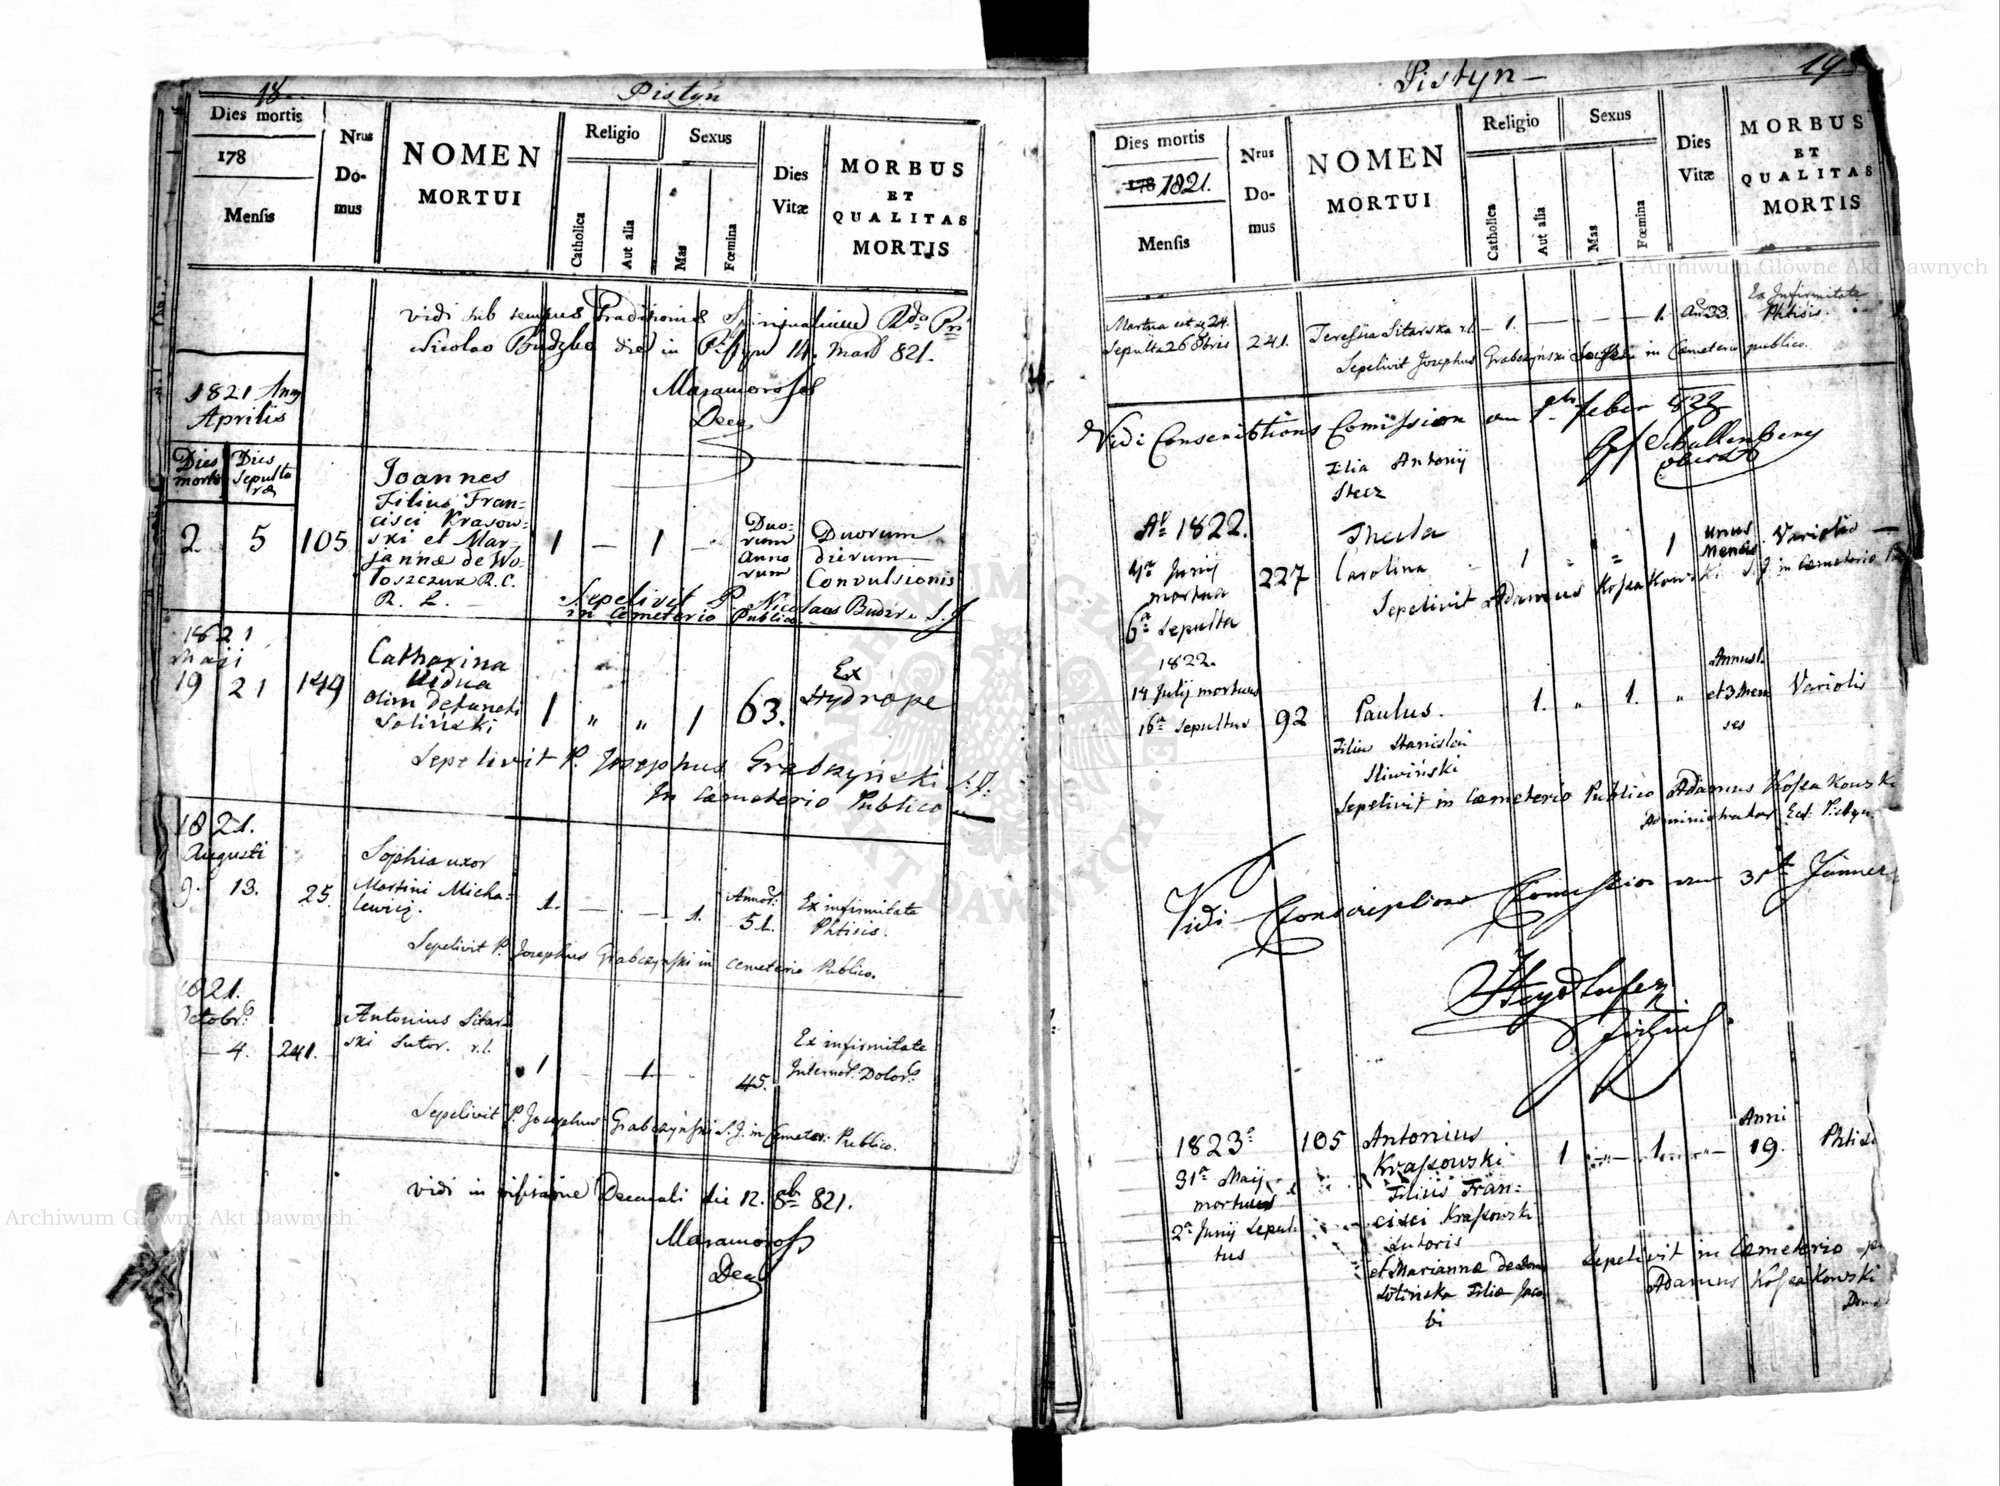 18
Pistyn
Dies mortis
178
Mensis
Nrus
Do-
mus
NOMEN
MORTUI
Religio
Catholica
Aut alia
Sexus
Mas
Fœmina
Dies
Vitæ
MORBUS
ET
QUALITAS
MORTIS
Vidi sub tempus Traditionis Spiritualium
Nicolao Budzko in Pistyn 14. 821.
Maramorosch
Dec
1821
Aprilis
Dies
mortis
Dies
Sepultu
ræ
2. 5 105
Joannes
Filius Fran-
cisci Krasow-
ski et Mar-
jannæ de Wo-
toszczuk R.C.
R. L.
1 — 1 —
Duo-
rum
anno
rum
Duorum
dierum
Convulsionis
Sepelivit P. Nicolaus S.J.
in Cemeterio Publico
1821
Maji
19 21 149
Catharina
Vidua
olim defuncti
Soliński
1 „ „ 1 63.
Ex
Hydrope
Sepelivit P. Josephus Grabczyński S.J.
In Cæmeterio Publico
1821.
Augusti
9. 13. 25.
Sophia uxor
Martini Micha-
lewicz.
1. — — 1.
Annor:
51.
Ex infirmitate
Phtisis.
Sepelivit P. Josephus Grabczynski in cemeterio Publico.
1821.
Octobr:
4. 241.
Antonius Sitar-
ski Sutor. r.l.
1 1. 45.
Ex infirmitate
Internor: Dolor:
Sepelivit P. Josephus Grabczyński S.J. in Cemeter: Publico.
Vidi in visitatione Decanali die 12. 8b 821.
Maramorosch
Dec
19
Pistyn
Dies mortis
178 1821.
Mensis
Nrus
Do-
mus
NOMEN
MORTUI
Religio
Catholica
Aut alia
Sexus
Mas
Fœmina
Dies
Vitæ
MORBUS
ET
QUALITAS
MORTIS
Mortua est 24.
Sepulta 26 8bris 241. Teressia Sitarska r.l. — 1. — — 1. An 33.
Ex Infirmitate
Phtisis.
Sepelivit Josephus Grabczyński in Cemeterio publico.
Vidi Conscribtions Comission am feber 822
Schallenberg
Oberst
Filia Antonij
Stecz
Ao 1822.
4ta Junij
mortua
6ta Sepulta
227
Thecla
Carolina
1 „ „ 1
unius
Mensis
Variolis —
Sepelivit Adamus Kossakowski S.J. in Cæmeterio
1822.
14 Julij mortuus
16a Sepultus 92
Paulus.
Filius Stanislai
Sliwiński
1. „ 1. „
Annus 1.
et 3 Men
ses
Variolis
Sepelivit in Cæmeterio Publico Adamus Kossakowski
Administrator Ecl. Pistyn
Vidi Conscriptions Comission am 31t Jänner
1823
31a Maij
mortuus
2a Junij Sepul-
tus
105
Antonius
Krassowski
Filius Fran:
cisci Krassowski
Sutoris
et Marianna de
Solińska Filia Jaco
bi
1 — 1 —
Anni
19.
Phtisi
Sepelivit in Cæmeterio
Adamus Kossakowski
Archiwum Główne Akt Dawnych
Archiwum Główne Akt Dawnych
ARCHIWUM GŁÓWNE
AKT DAWNYCH